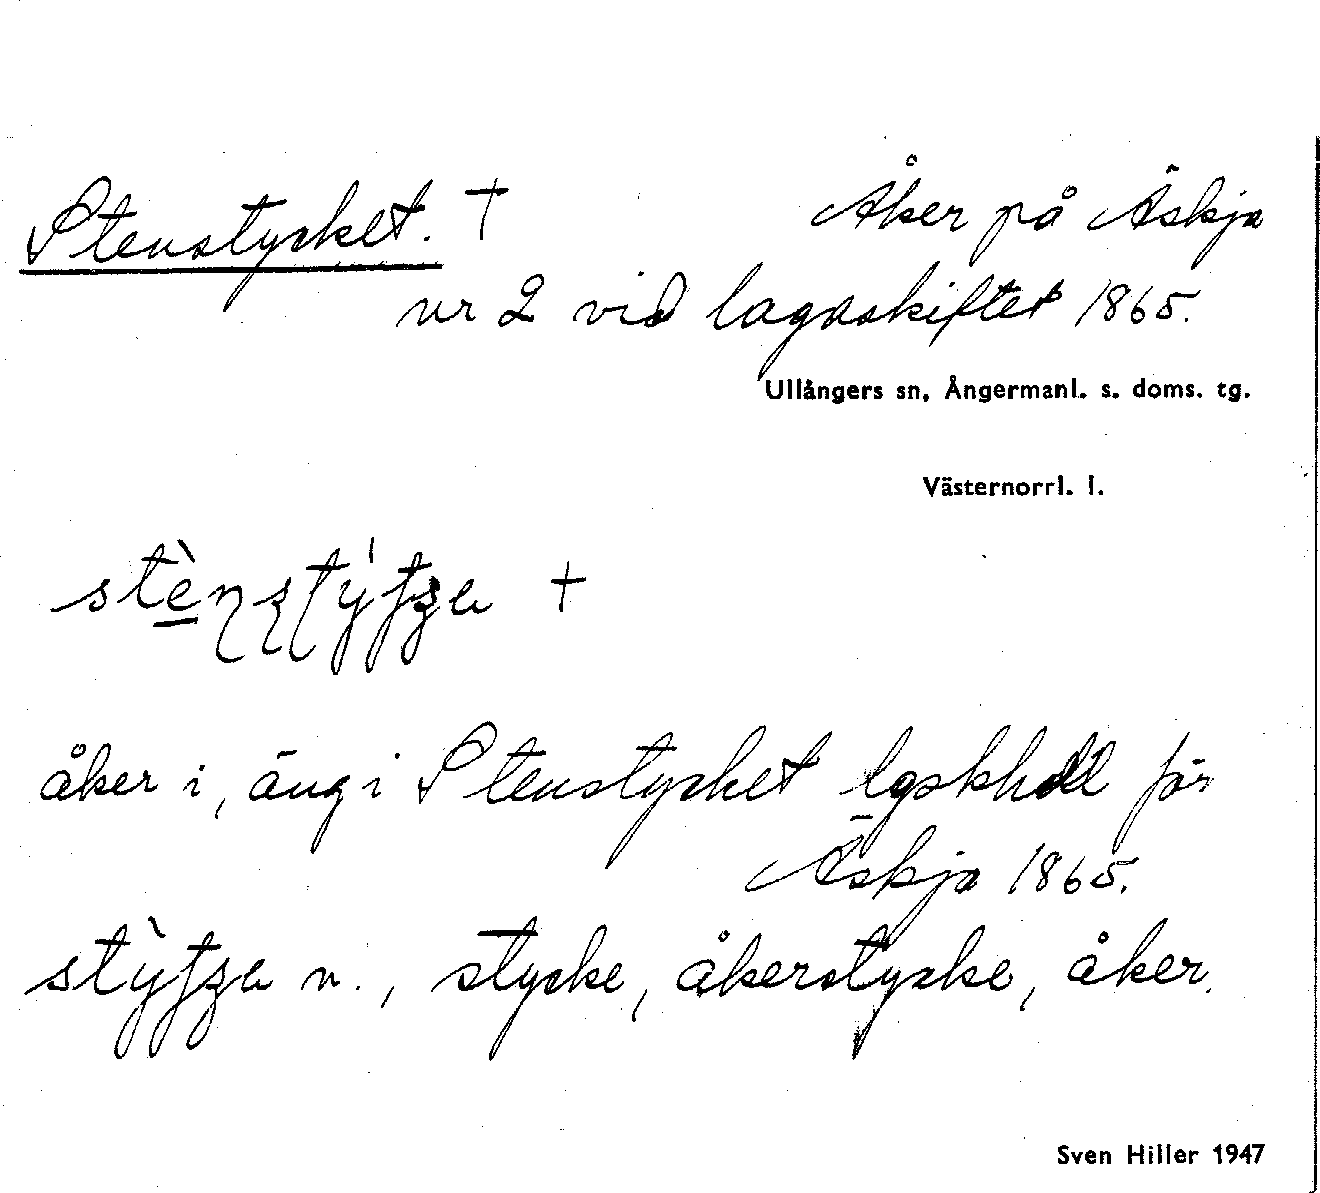 Stenstycket. † Åker på Äskja
nr 2 vid lagaskiftet 1865.
Ullångers sn, Ångermanl. s. doms. tg.
Västernorrl. l.
†
åker i, äng i Stenstycket lgskhdl för
Äskja 1865.
n., stycke, åkerstycke, åker.
Sven Hiller 1947